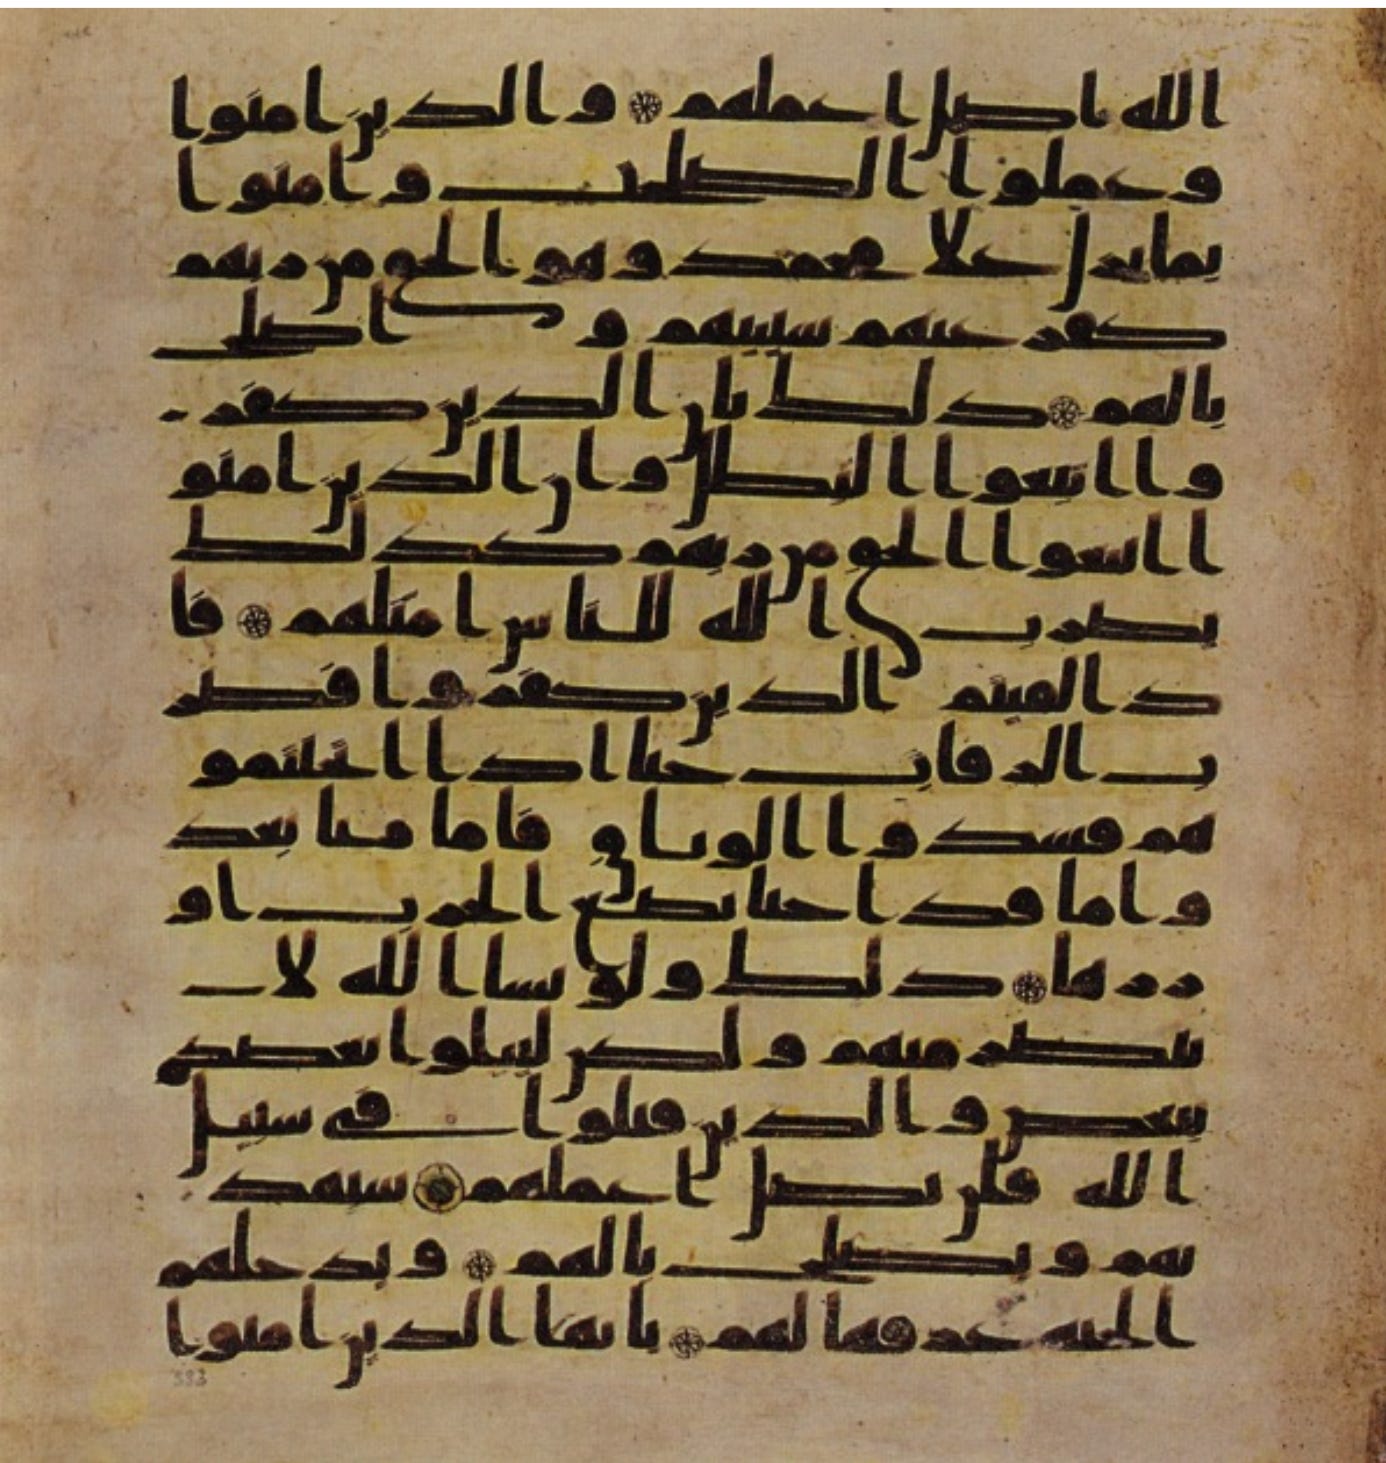 الله اضل اعملهم والذين امنوا
وعملوا الصلحت وامنوا
بما نزل علا محمد وهو الحق من ربهم
كفر عنهم سييتهم و اصلح
بالهم ذلك بان الذين كفر
وا اتبعوا البطل وان الذين امنو
ا اتبعوا الحق من ربهم كذلك
يضرب الله للناس امثلهم فا
ذا لقيتم الذين كفروا فضر
ب الرقاب حتا اذا اثخنتمو
هم فشدوا الوثاق فاما منا بعد
واما فدا حتا تضع الحرب او
زرها ذلك ولو يشا الله لا
نتصر منهم ولكن ليبلوا بعضكم
ببعض والذين قتلوا في سبيل
الله فلن يضل اعملهم سيهد
يهم ويصلح بالهم ويدخلهم
الجنة عرفها لهم يايها الذين امنوا